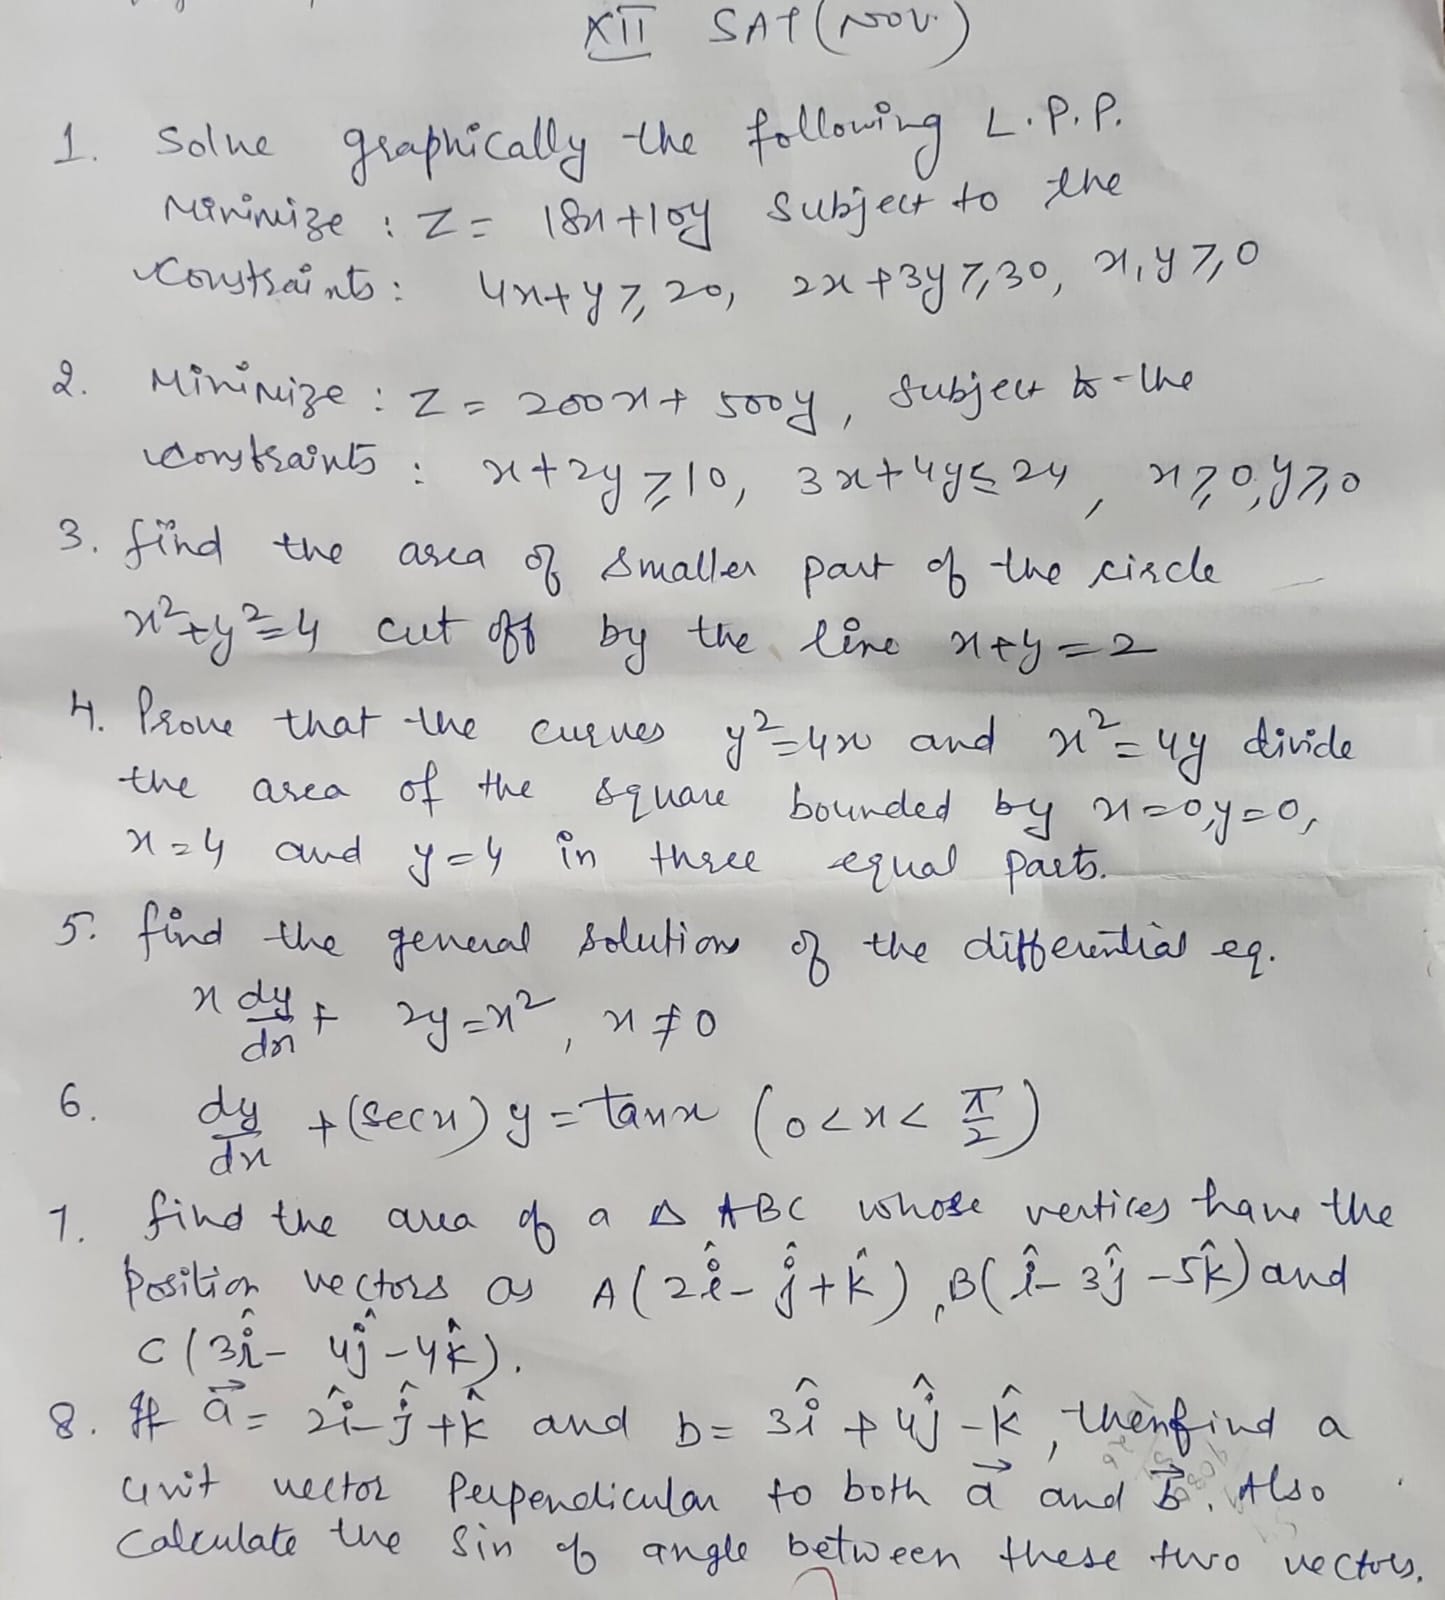 XII SAT (Nov.)
1. Solve graphically the following L.P.P.
Minimize : Z = 18x+10y Subject to the
Constraints : 4x+y ≥ 20, 2x+3y ≥ 30, x,y ≥ 0
2. Minimize : Z = 200x + 500y, Subject to the
constraints : x+2y ≥ 10, 3x+4y ≤ 24, x ≥ 0, y ≥ 0
3. find the area of smaller part of the circle
x²+y²=4 cut off by the line x+y=2
4. Prove that the curves y²=4x and x²=4y divide
the area of the square bounded by x=0, y=0,
x=4 and y=4 in three equal parts.
5. find the general solution of the differential eq.
x dy/dx + 2y = x², x ≠ 0
6. dy/dx + (sec x) y = tan x (0 < x < π/2)
7. find the area of a Δ ABC whose vertices have the
position vectors as A(2î - ĵ + k̂), B(î - 3ĵ - 5k̂) and
C(3î - 4ĵ - 4k̂).
8. If a⃗ = 2î - ĵ + k̂ and b = 3î + 4ĵ - k̂, then find a
unit vector perpendicular to both a⃗ and b⃗. Also
Calculate the Sin of angle between these two vectors.